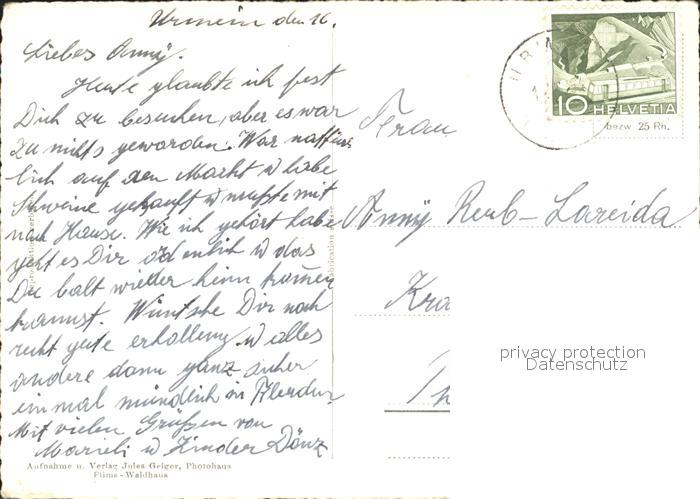 Urmein den 16.
Liebes Annÿ.
Heute glaubte ich fest
Dich zu besuchen, aber es war
zu nichts geworden. War natür
lich auf den Markt u habe
Schweine gekauft u mußte mit
nach Hause. Wie ich gehört habe
geht es Dir ordentlich u das
Du balt wieder heim kommen
kannst. Wüntsche Dir noch
recht gute erhollung u alles
andere dann ganz sicher
einmal mündlich in
Mit vielen Grüßen von
Marieli u Kinder Dönz
Aufnahme u. Verlag Jules Geiger, Photohaus
Flims-Waldhaus
URM
10 HELVETIA
bezw 25 Rh.
Frau
Annÿ Reub-Lareida
Kra
Th
privacy protection
Datenschutz